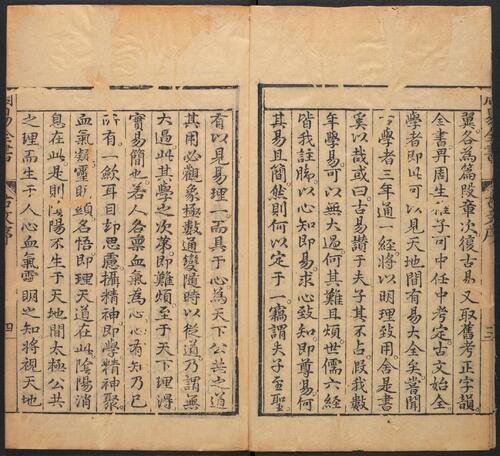 翼各為篇段章次復古易又取舊考正字韻
全書畀周生 子可中任中考定古文始全
學者即此可以見天地間有易大全矣嘗聞
學者三年通一經將以明理致用舍是書
奚以哉或曰古易讚于夫子其不占假我數
年學易可以無大過何其難且煩世儒六經
皆我註脚以心知即易求心致知即尊易何
其易且簡然則何以定于一竊謂夫子至聖
有以見易理一而具于心為天下公共之道
其用必觀象極數通變隨時以從道乃謂無
大過此其學之次第即難煩至于天下理得
實易簡也若人各禀血氣為心心有知乃已
所有一歛耳目却思慮攝精神即學精神聚
血氣類靈即 名悟即理天道在此陰陽消
息在此是則陰陽不生于天地間太極公共
之理而生于人心血氣靈明之知將視天地
周易全書
古文序
三
四